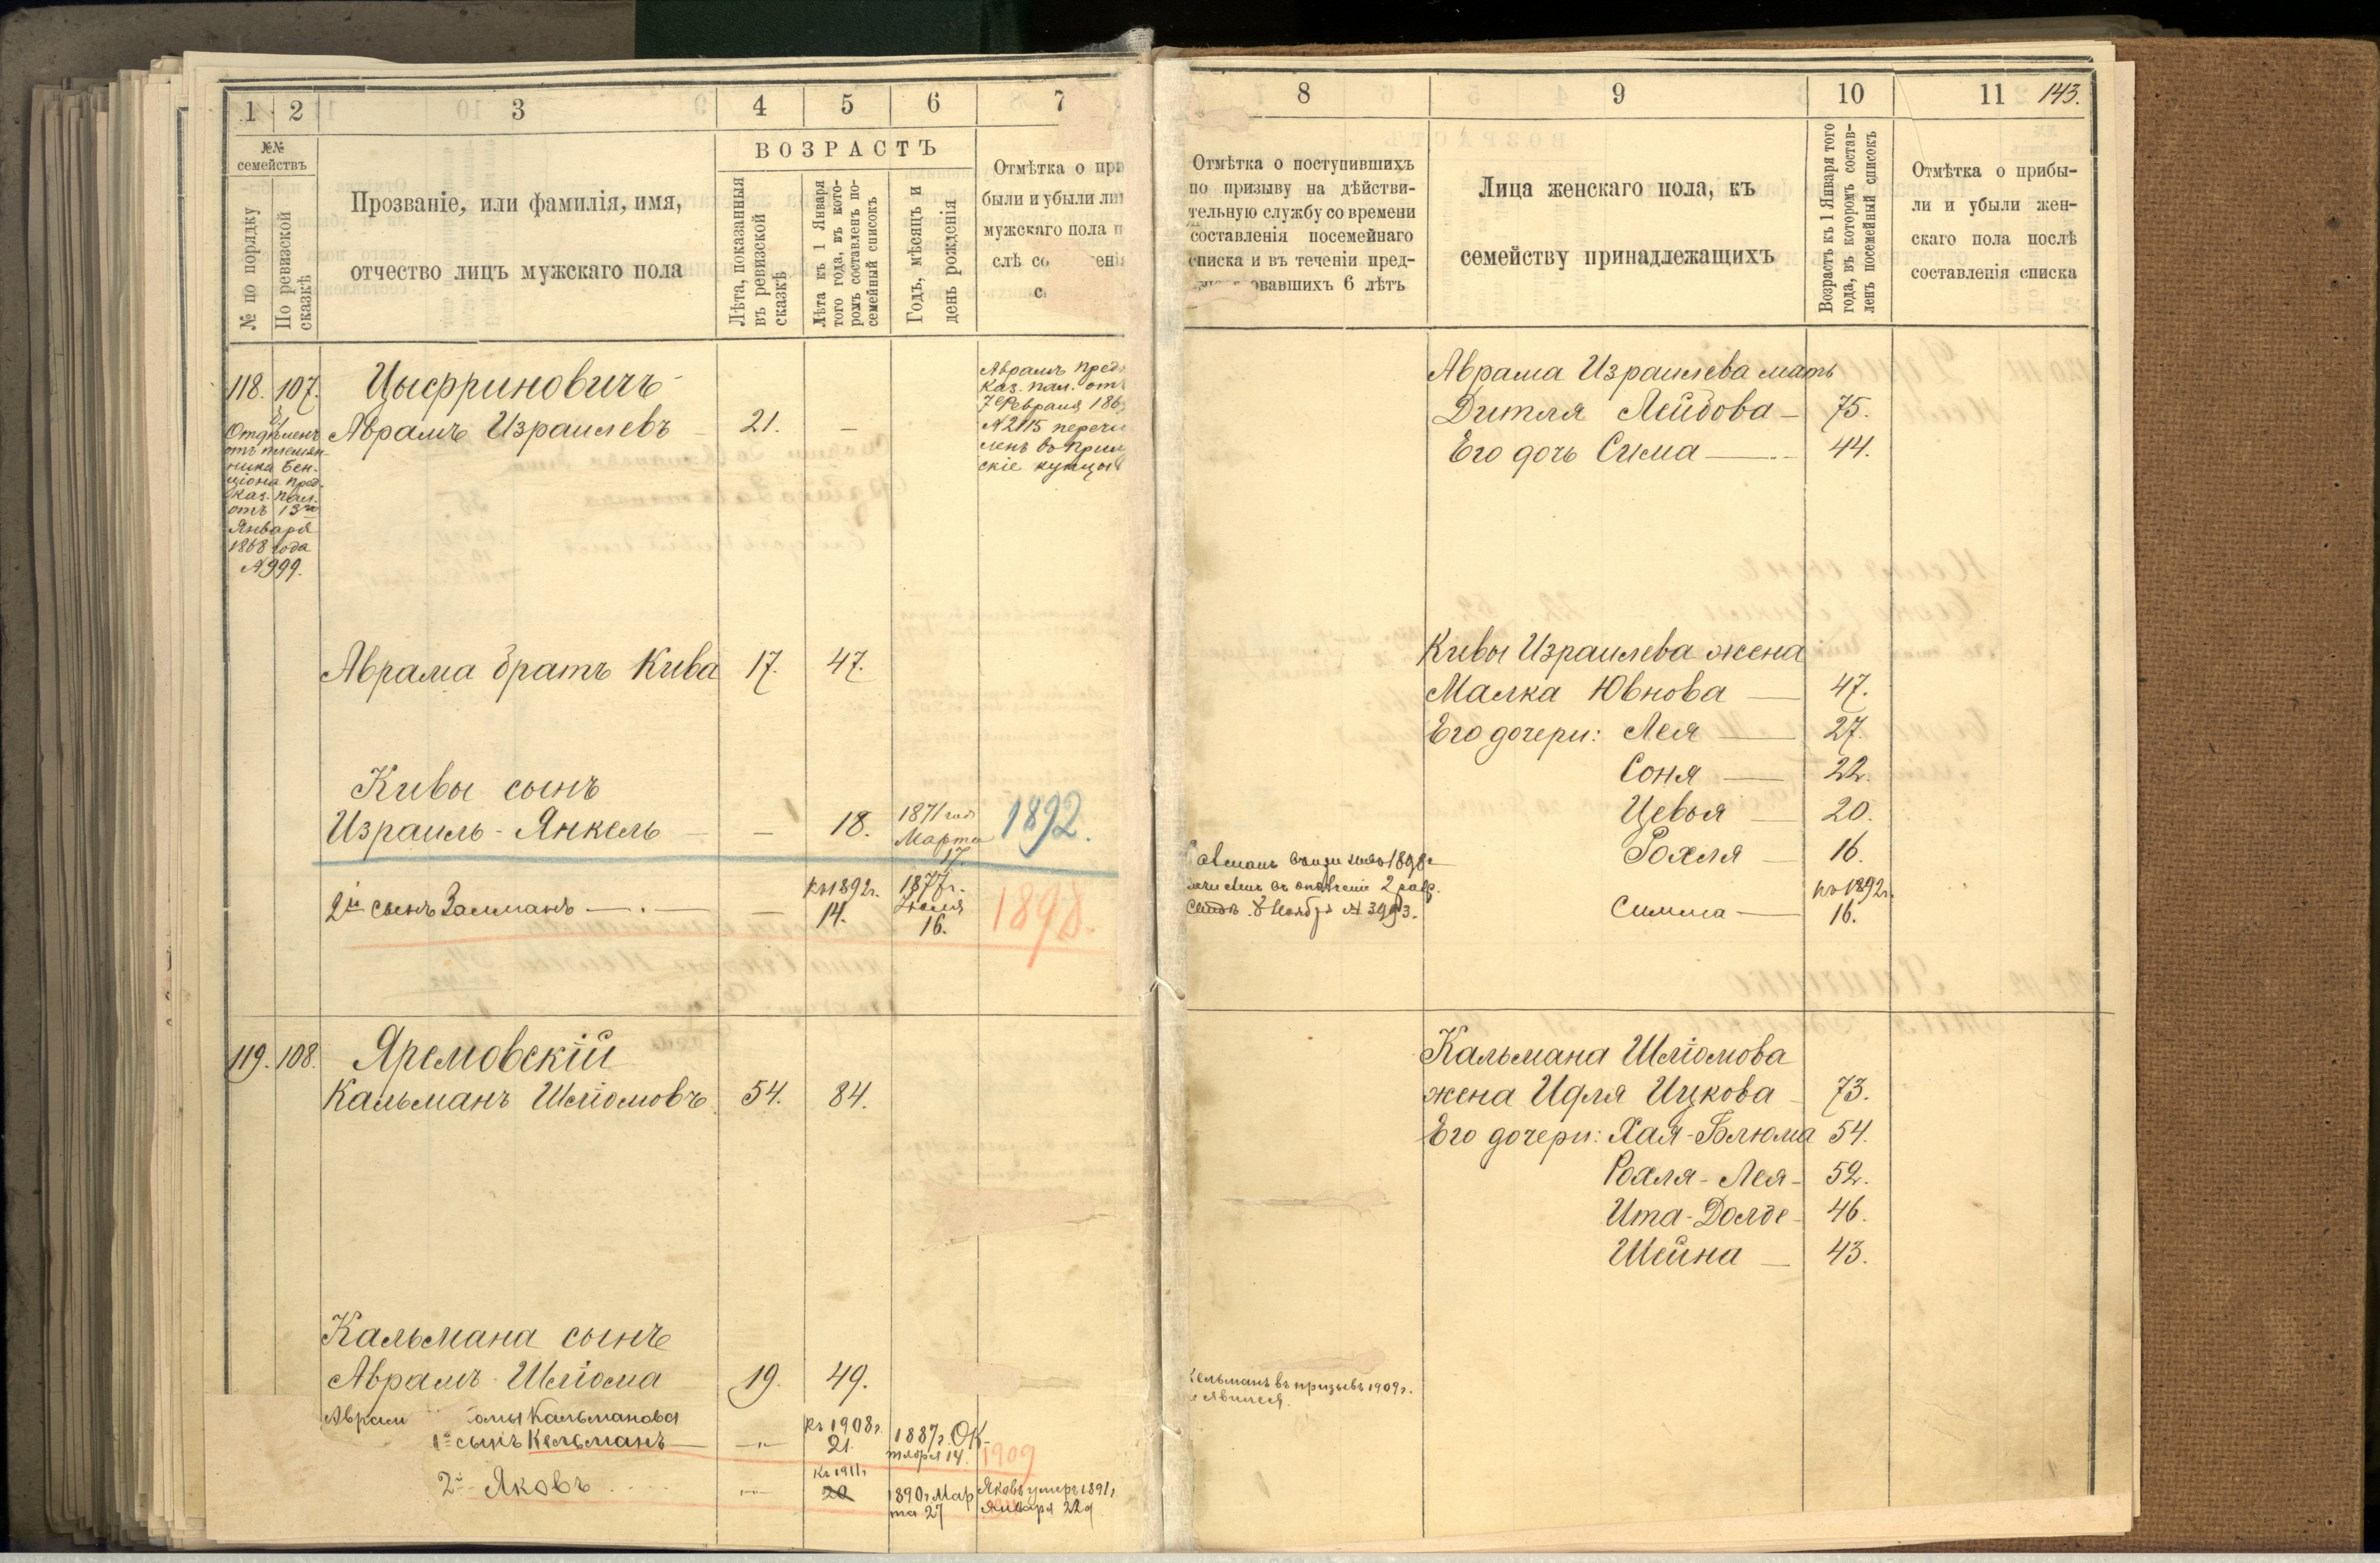 1 2 3 4 5 6 7
№№ семействъ
№ по порядку
По ревизской сказкѣ
Прозваніе, или фамилія, имя,
отчество лицъ мужскаго пола
ВОЗРАСТЪ
Лѣта, показанныя
въ ревизской
сказкѣ
Лѣта къ 1 Января
того года, въ кото-
ромъ составленъ по-
семейный списокъ
Годъ, мѣсяцъ и
день рожденія
Отмѣтка о при
были и убыли ли
мужскаго пола п
слѣ со ені
с
118. 107. Цыфриновичъ
Аврамъ Израилевъ 21. —
Отдѣленъ
отъ племян-
ника Бен-
ціона пред.
Каз. пал.
отъ 13го
Января
1868 года
№ 999.
Аврамъ пред
Каз. пал. отъ
7 Февраля 186
№ 2115 перечи
ленъ въ
скіе купцы
Аврама братъ Кива 17. 47.
Кивы сынъ
Израиль - Янкель — 18. 1871 год
Марта
17
1892.
2й сынъ Залманъ — къ 1892г.
14.
1877г.
Іюля
16.
1898.
119. 108. Яремовскій
Кальманъ Шліомовъ 54. 84.
Кальмана сынъ
Аврамъ - Шліома 19. 49.
Аврам омы Кальманова
1й сынъ Кельманъ къ 1908г.
21.
1887г. Ок-
тября 14.
1909
2й Яковъ къ 1911г
20
1890г Мар
та 27
Яковъ умеръ 1891г.
Января 22д
8 9 10 11 143.
Отмѣтка о поступившихъ
по призыву на дѣйстви-
тельную службу со времени
составленія посемейнаго
списка и въ теченіи пред-
овавшихъ 6 лѣтъ
Лица женскаго пола, къ
семейству принадлежащихъ
Возрастъ къ 1 Января того
года, въ которомъ состав-
ленъ посемейный списокъ
Отмѣтка о прибы-
ли и убыли жен-
скаго пола послѣ
составленія списка
Аврама Израилева мать
Дитля Лейбова — 75.
Его дочь Сима — 44.
Кивы Израилева жена
Малка Ювнова — 47.
Его дочери: Лея — 27.
Соня — 22.
Цевья — 20.
Рохля — 16.
1898г
2 разр.
Ноября № 3993.
къ 1892г.
Симма — 16.
Кальмана Шліомова
жена Идля Ицкова — 73.
Его дочери: Хая-Блюма 54.
Рохля - Лея - 52.
Ита - Долбе - 46.
Шейна — 43.
Кельманъ въ призывъ 1909г.
е явился.